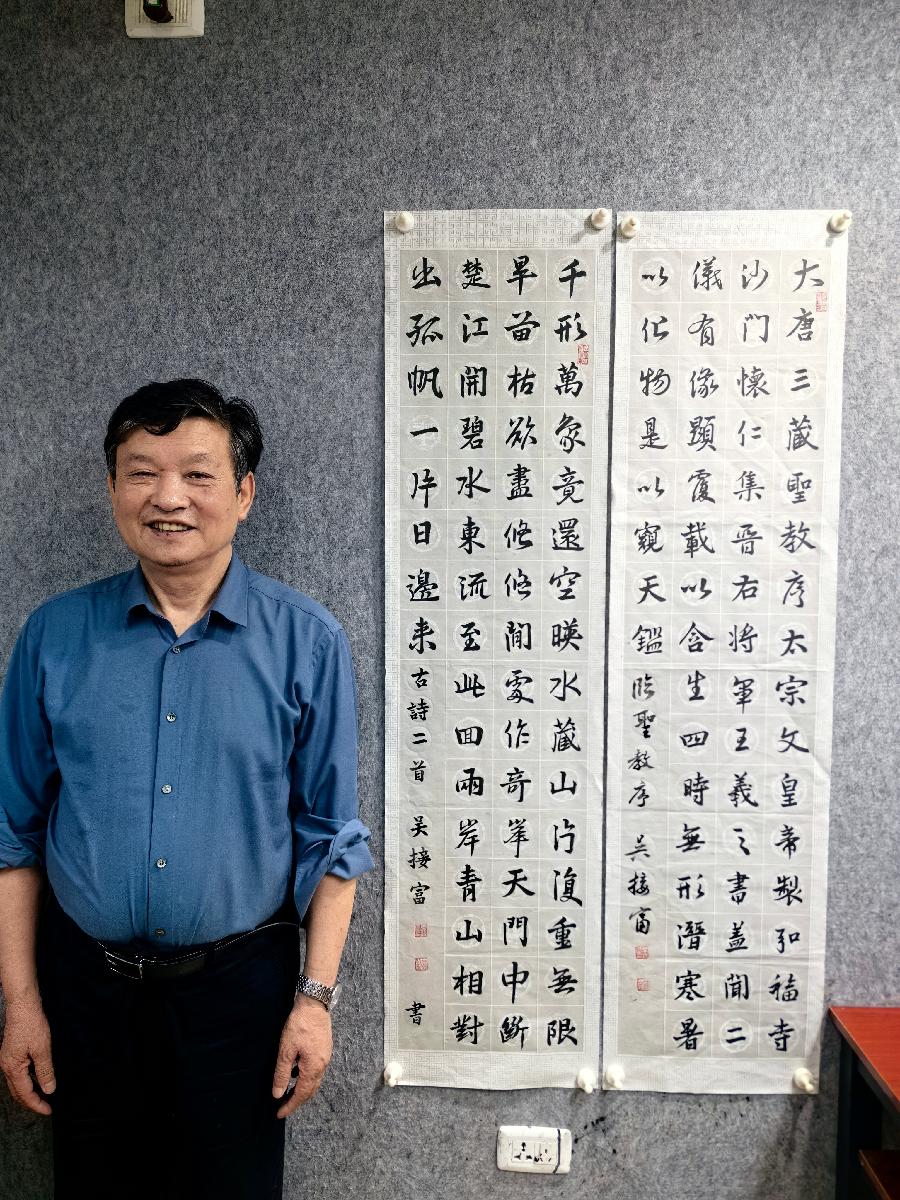 大唐三藏聖教序太宗文皇帝製弘福寺
沙門懷仁集晉右將軍王羲之書蓋聞二
儀有像顯覆載以含生四時無形潛寒暑
以化物是以窺天鑑 臨聖教序 吴接富
千形萬象竟還空暎水藏山片復重無限
旱苗枯欲盡悠悠閒處作奇峯天門中斷
楚江開碧水東流至此回兩岸青山相對
出孤帆一片日邊来 古詩二首 吴接富 書